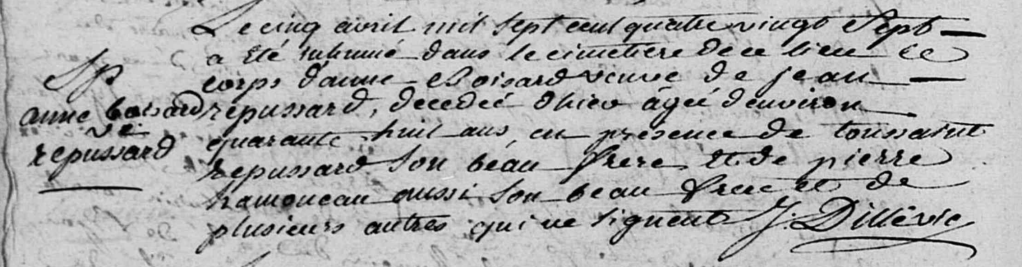 Le cinq avril mil sept cent quatre vingt Sept
a été inhumé dans le cimetiere de ce lieu le
corps d'anne Boisard veuve de jean
répussard, decedée d'hier âgée d'environ
quarante huit ans en présence de toussaint
repussard son beau frere et de pierre
hamoneau aussi son beau frere et de
plusieurs autres qui ne signent
Sp
anne boisard
ve
repussard